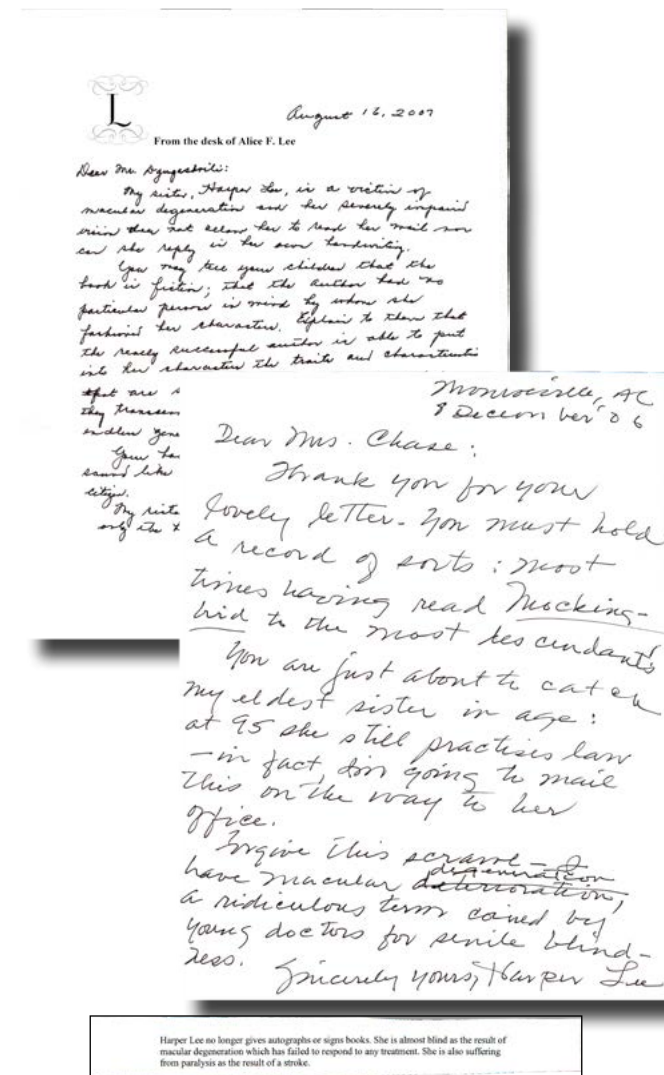 L
August 16, 2007
From the desk of Alice F. Lee
Dear Mr.
My sister, Harper Lee, is a victim of
macular degeneration and her severely impaired
vision does not allow her to read her mail nor
can she reply in her own handwriting.
You may tell your children that the
book is fiction; that the author had no
particular person in mind by whom she
fashioned her characters. Explain to them that
the really successful author is able to put
into her characters the traits and characteristics
that are
they transcen
endless gene
Your
sound like
citizen.
My siste
only the
Monroeville, AL
8 December '06
Dear Mrs. Chase:
Thank you for your
lovely letter. You must hold
a record of sorts: most
times having read Mocking-
bird to the most descendants!
You are just about to catch
my eldest sister in age:
at 95 she still practises law
— in fact, I'm going to mail
this on the way to her
office.
Forgive this scrawl — I
have macular degeneration
deterioration,
a ridiculous term coined by
young doctors for senile blind-
ness.
Sincerely yours, Harper Lee
Harper Lee no longer gives autographs or signs books. She is almost blind as the result of
macular degeneration which has failed to respond to any treatment. She is also suffering
from paralysis as the result of a stroke.